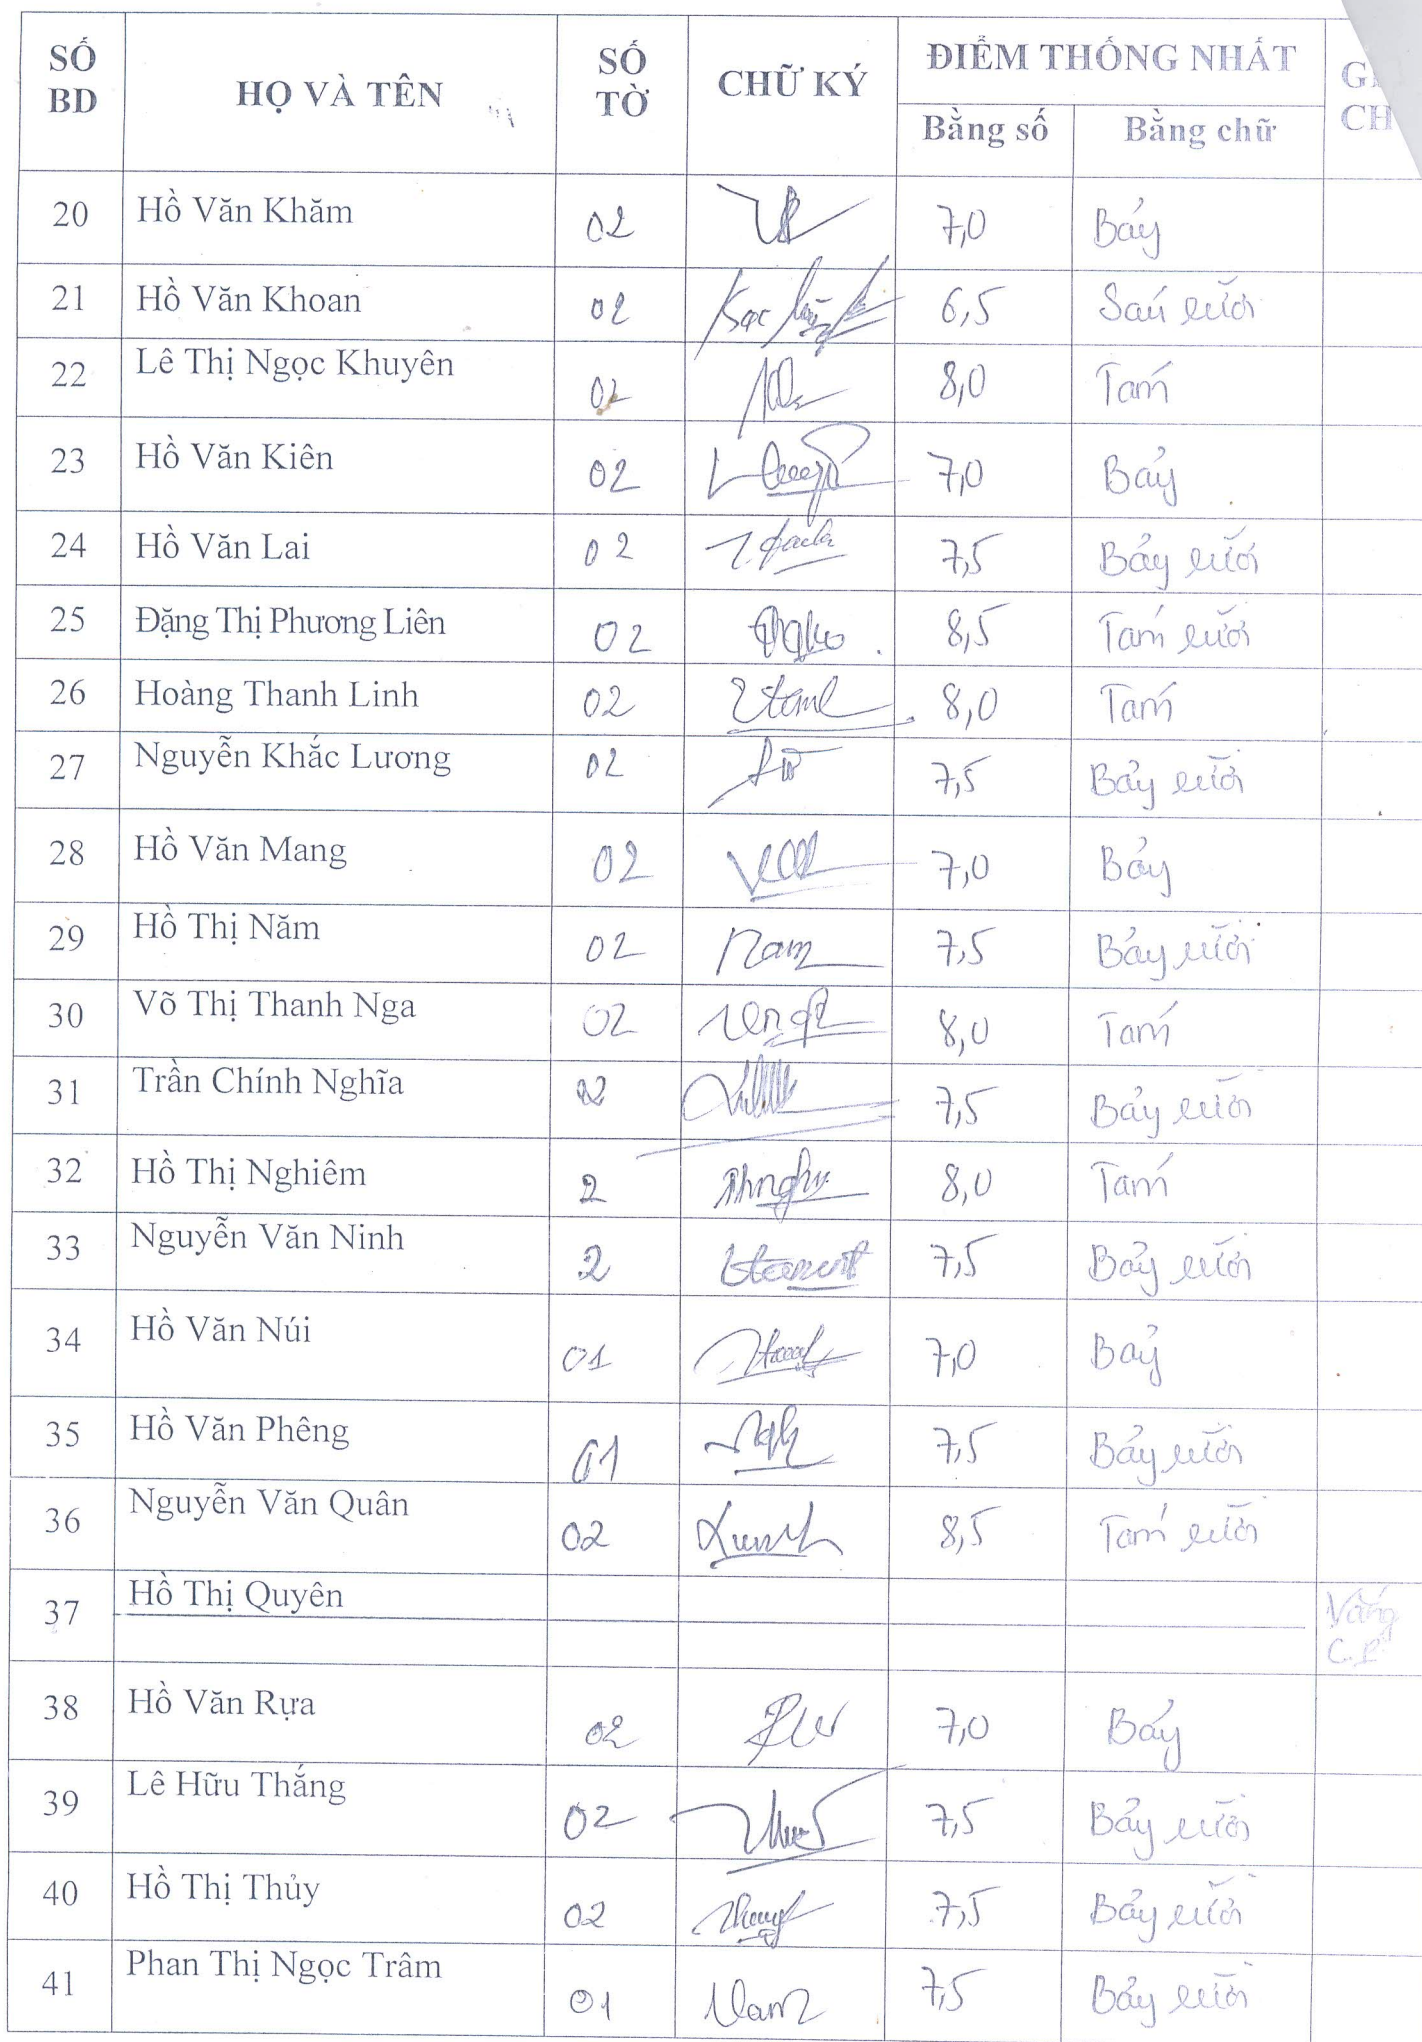 SỐ BD HỌ VÀ TÊN SỐ TỜ CHỮ KÝ ĐIỂM THỐNG NHẤT
Bằng số Bằng chữ CH
20 Hồ Văn Khăm 02 7,0 Bảy
21 Hồ Văn Khoan 02 6,5 Sáu rưỡi
22 Lê Thị Ngọc Khuyên 02 8,0 Tám
23 Hồ Văn Kiên 02 7,0 Bảy
24 Hồ Văn Lai 02 7,5 Bảy rưỡi
25 Đặng Thị Phương Liên 02 8,5 Tám rưỡi
26 Hoàng Thanh Linh 02 8,0 Tám
27 Nguyễn Khắc Lương 02 7,5 Bảy rưỡi
28 Hồ Văn Mang 02 7,0 Bảy
29 Hồ Thị Năm 02 Nam 7,5 Bảy rưỡi
30 Võ Thị Thanh Nga 02 8,0 Tám
31 Trần Chính Nghĩa 02 7,5 Bảy rưỡi
32 Hồ Thị Nghiêm 2 8,0 Tám
33 Nguyễn Văn Ninh 2 7,5 Bảy rưỡi
34 Hồ Văn Núi 01 7,0 Bảy
35 Hồ Văn Phêng 01 7,5 Bảy rưỡi
36 Nguyễn Văn Quân 02 8,5 Tám rưỡi
37 Hồ Thị Quyên Vắng
C.P
38 Hồ Văn Rựa 02 7,0 Bảy
39 Lê Hữu Thắng 02 7,5 Bảy rưỡi
40 Hồ Thị Thủy 02 7,5 Bảy rưỡi
41 Phan Thị Ngọc Trâm 01 7,5 Bảy rưỡi